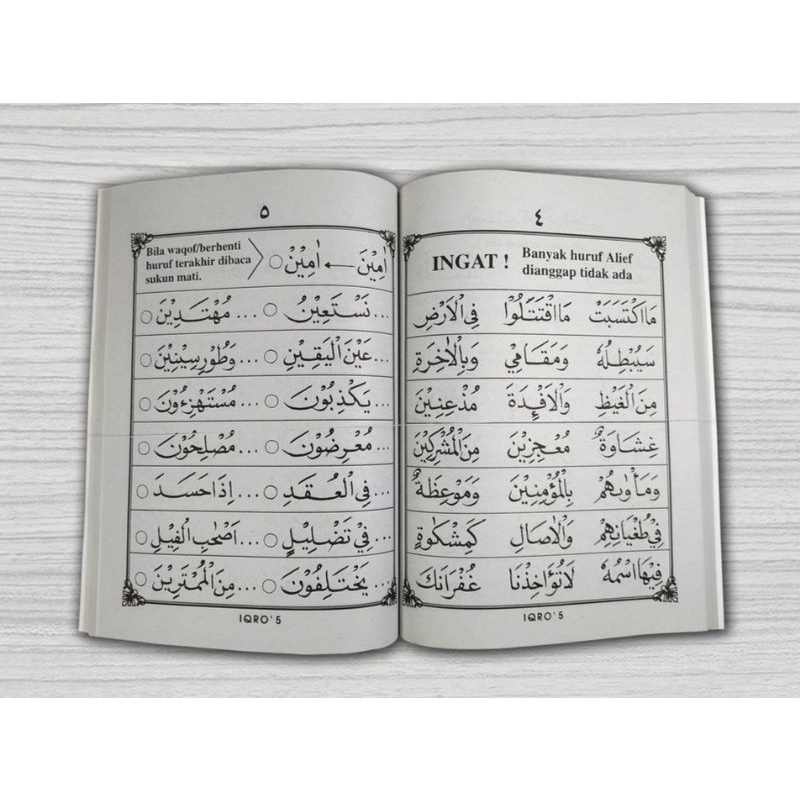 ٤
INGAT !
Banyak huruf Alief
dianggap tidak ada
مَااكْتَسَبَتْ مَااقْتَتَلُوْا فِى الْاَرْضِ
سَيُبْطِلُهٗ وَمَقَامِيْ وَبِالْاٰخِرَةِ
مِنَ الْغَيْظِ وَالْاَفْئِدَةَ مُذْعِنِيْنَ
غِشَاوَةٌ مُعْجِزِيْنَ مِنَ الْمُشْرِكِيْنَ
وَمَأْوٰىهُمْ بِالْمُؤْمِنِيْنَ وَمَوْعِظَةٌ
فِيْ طُغْيَانِهِمْ وَالْاٰصَالِ كَمِشْكٰوةٍ
فِيْهَا اسْمُهٗ لَاتُؤَاخِذْنَا غُفْرَانَكَ
IQRO' 5
٥
Bila waqof/berhenti
huruf terakhir dibaca
sukun mati.
اٰمِيْنَ ← اٰمِيْنْ ○
... نَسْتَعِيْنُ ○ ... مُهْتَدِيْنَ ○
... عَيْنَ الْيَقِيْنِ ○ ... وَطُوْرِسِيْنِيْنَ ○
... يَكْذِبُوْنَ ○ ... مُسْتَهْزِءُوْنَ ○
... مُعْرِضُوْنَ ○ ... مُصْلِحُوْنَ ○
... فِى الْعُقَدِ ○ ... اِذَا حَسَدَ ○
... فِيْ تَضْلِيْلٍ ○ ... اَصْحٰبِ الْفِيْلِ ○
... يَخْتَلِفُوْنَ ○ ... مِنَ الْمُمْتَرِيْنَ ○
IQRO' 5